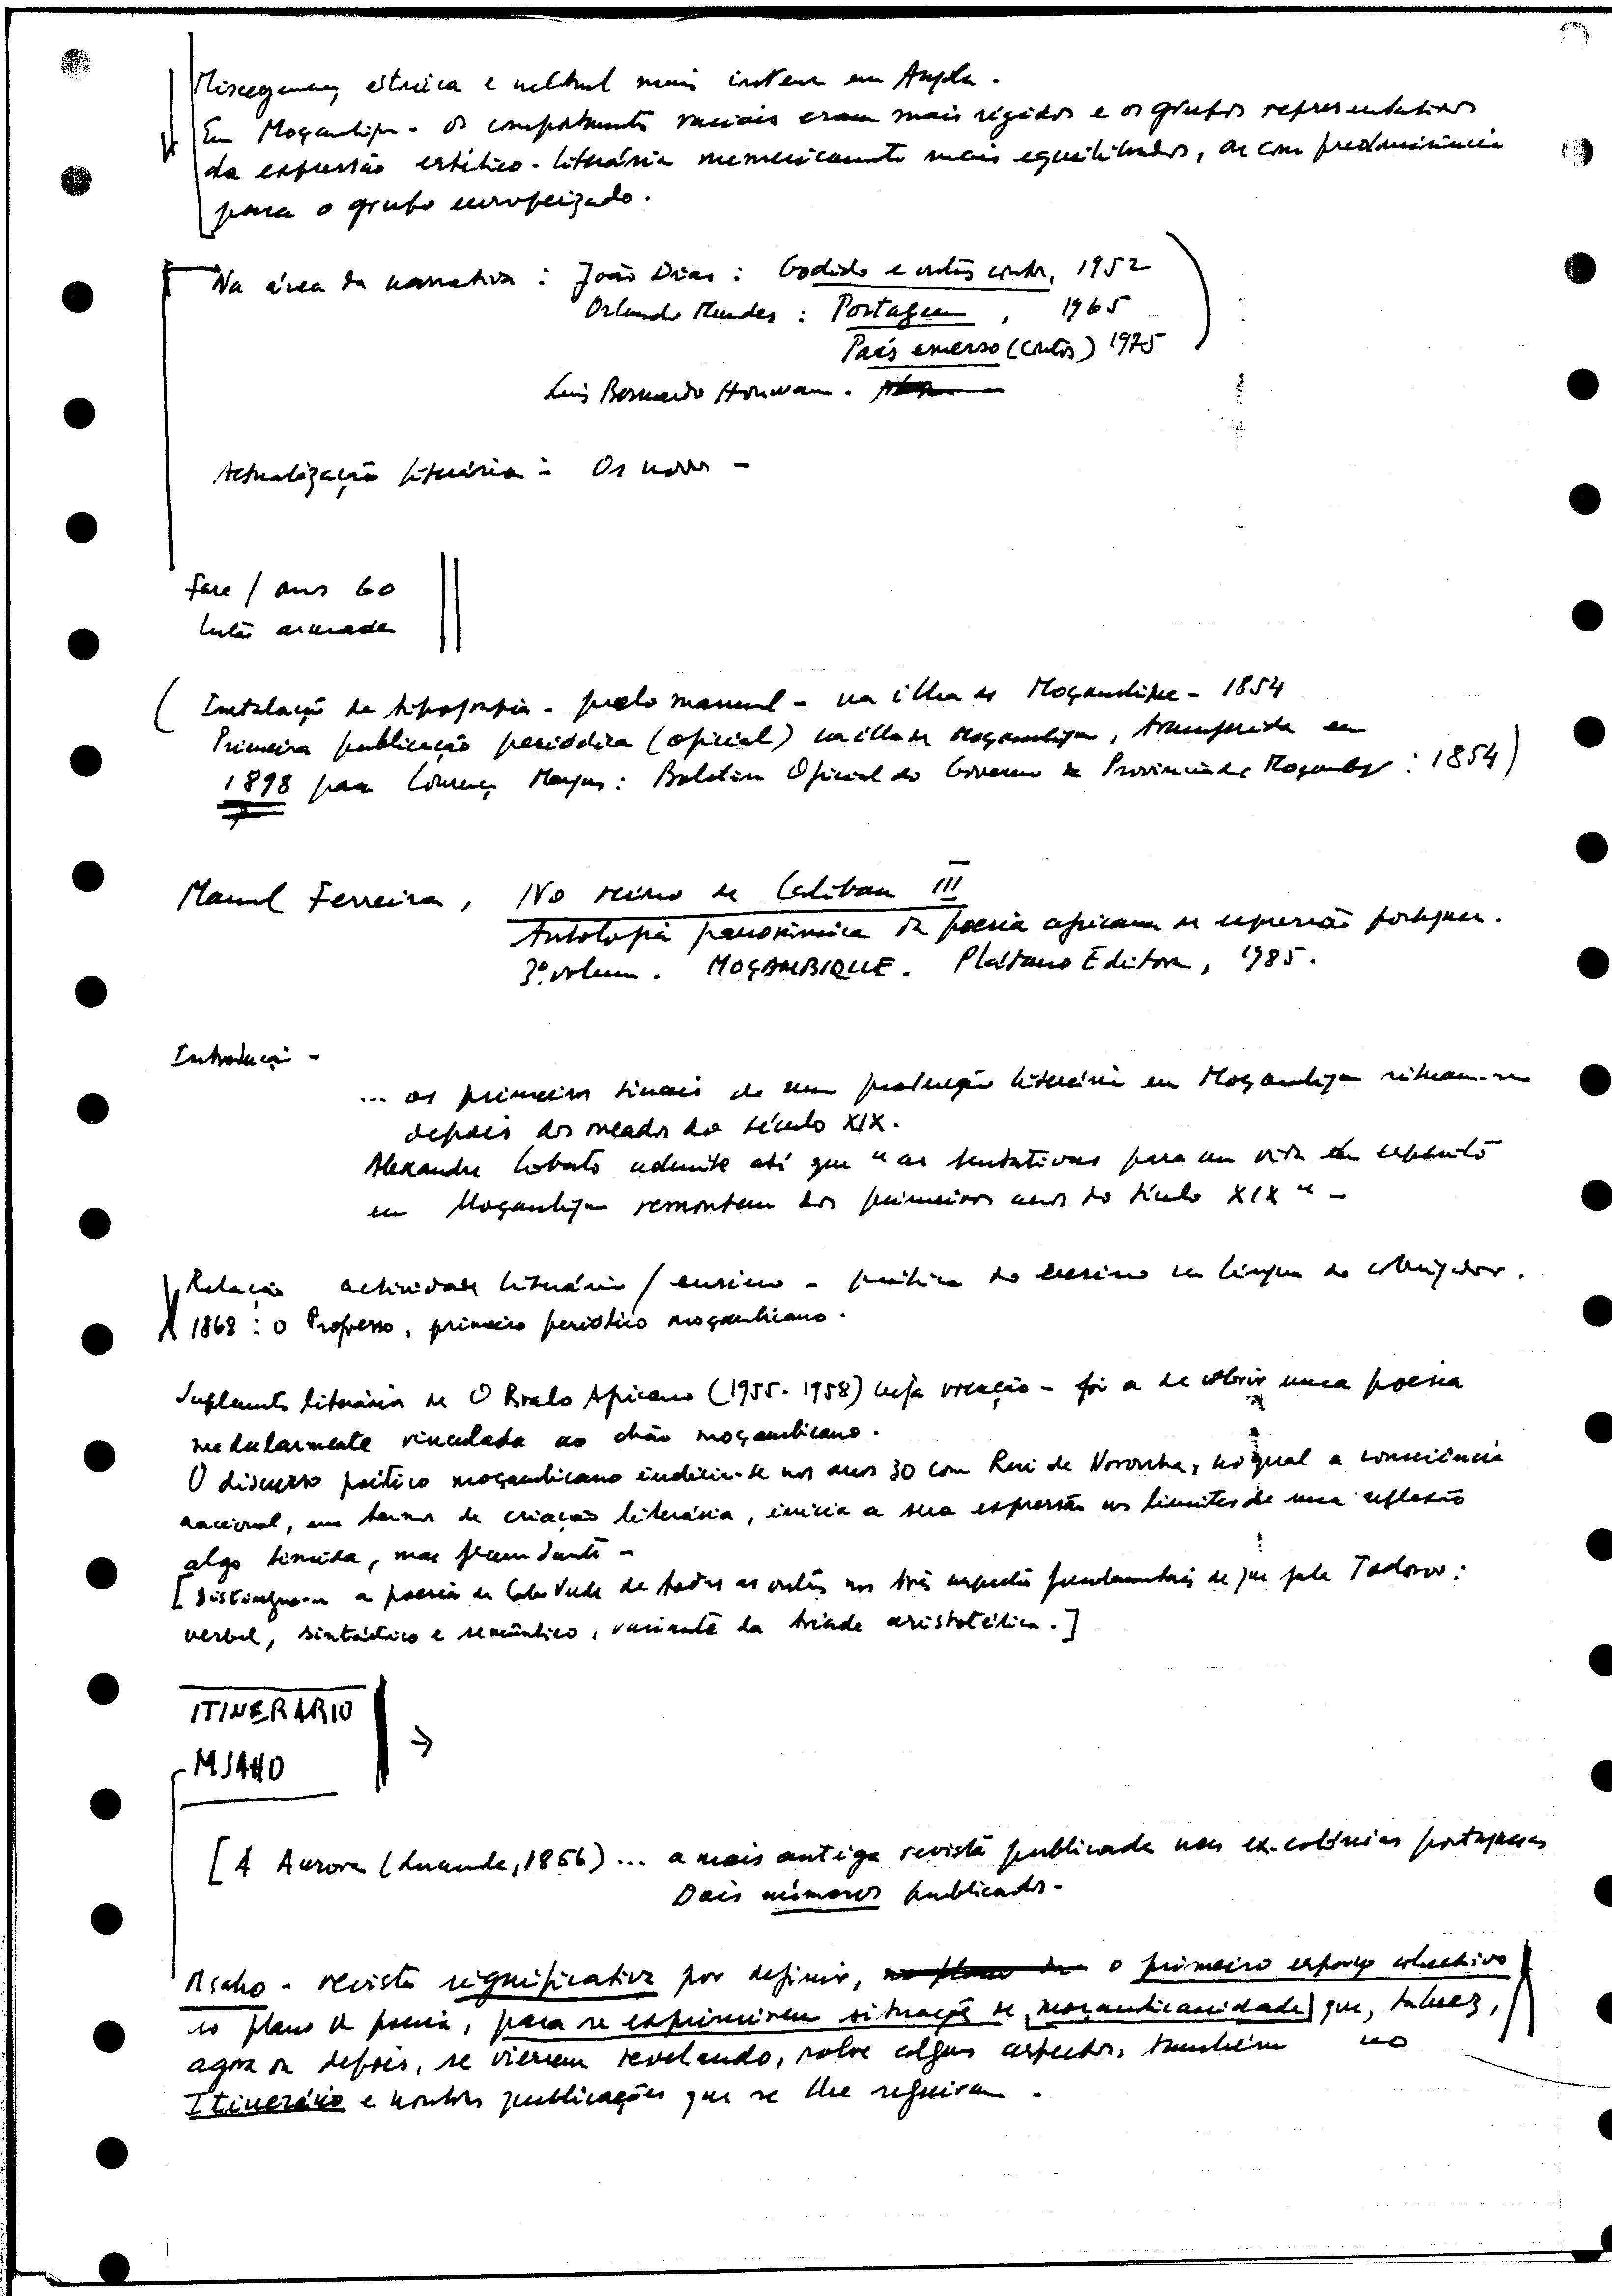 Miscegenação étnica e cultural mais intensa em Angola.
Em Moçambique - os comportamentos raciais eram mais rígidos e os grupos representativos
da expressão estético-literária numericamente mais equilibrados, ou com predominância
para o grupo europeizado.
Na área da narrativa : João Dias : Godido e outros contos, 1952
Orlando Mendes : Portagem , 1965
País emerso (contos) 1975
Luís Bernardo Honwana.
Actualização literária : Os novos -
Fase / anos 60
luta armada
( Instalação da tipografia - prelo manual - na ilha de Moçambique - 1854
Primeira publicação periódica (oficial) na ilha de Moçambique, transferida em
1898 para Lourenço Marques : Boletim Oficial do Governo da Província de Moçambique : 1854 )
Manuel Ferreira, No reino de Caliban III
Antologia panorâmica da poesia africana de expressão portuguesa.
3º volume. MOÇAMBIQUE. Plátano Editora, 1985.
Introdução -
... os primeiros sinais de uma produção literária em Moçambique situam-se
depois dos meados do século XIX.
Alexandre Lobato admite até que "as tentativas para uma vida de espírito
em Moçambique remontam aos primeiros anos do século XIX" -
Relação actividade literária / ensino - prática do ensino na língua do colonizador.
1868 : O Progresso, primeiro periódico moçambicano.
Suplemento literário de O Brado Africano (1955-1958) cuja vocação - foi a de cobrir uma poesia
medularmente vinculada ao chão moçambicano.
O discurso poético moçambicano indicia-se nos anos 30 com Rui de Noronha, no qual a consciência
nacional, em termos de criação literária, inicia a sua expressão nos limites de uma reflexão
algo tímida, mas fecundante -
[ Distingue-se a poesia de Cabo Verde de todas as outras nos três aspectos fundamentais de que fala Todorov :
verbal, sintáctico e semântico, variante da tríade aristotélica. ]
ITINERÁRIO
MSAHO →
[ A Aurora (Luanda, 1856) ... a mais antiga revista publicada nas ex-colónias portuguesas
Dois números publicados -
Msaho - revista significativa por definir, no plano da o primeiro esforço colectivo
no plano da poesia, para se exprimirem situações de [moçambicanidade] que, talvez,
agora ou depois, se vieram revelando, sobre alguns aspectos, também no
Itinerário e noutras publicações que se lhe seguiram.